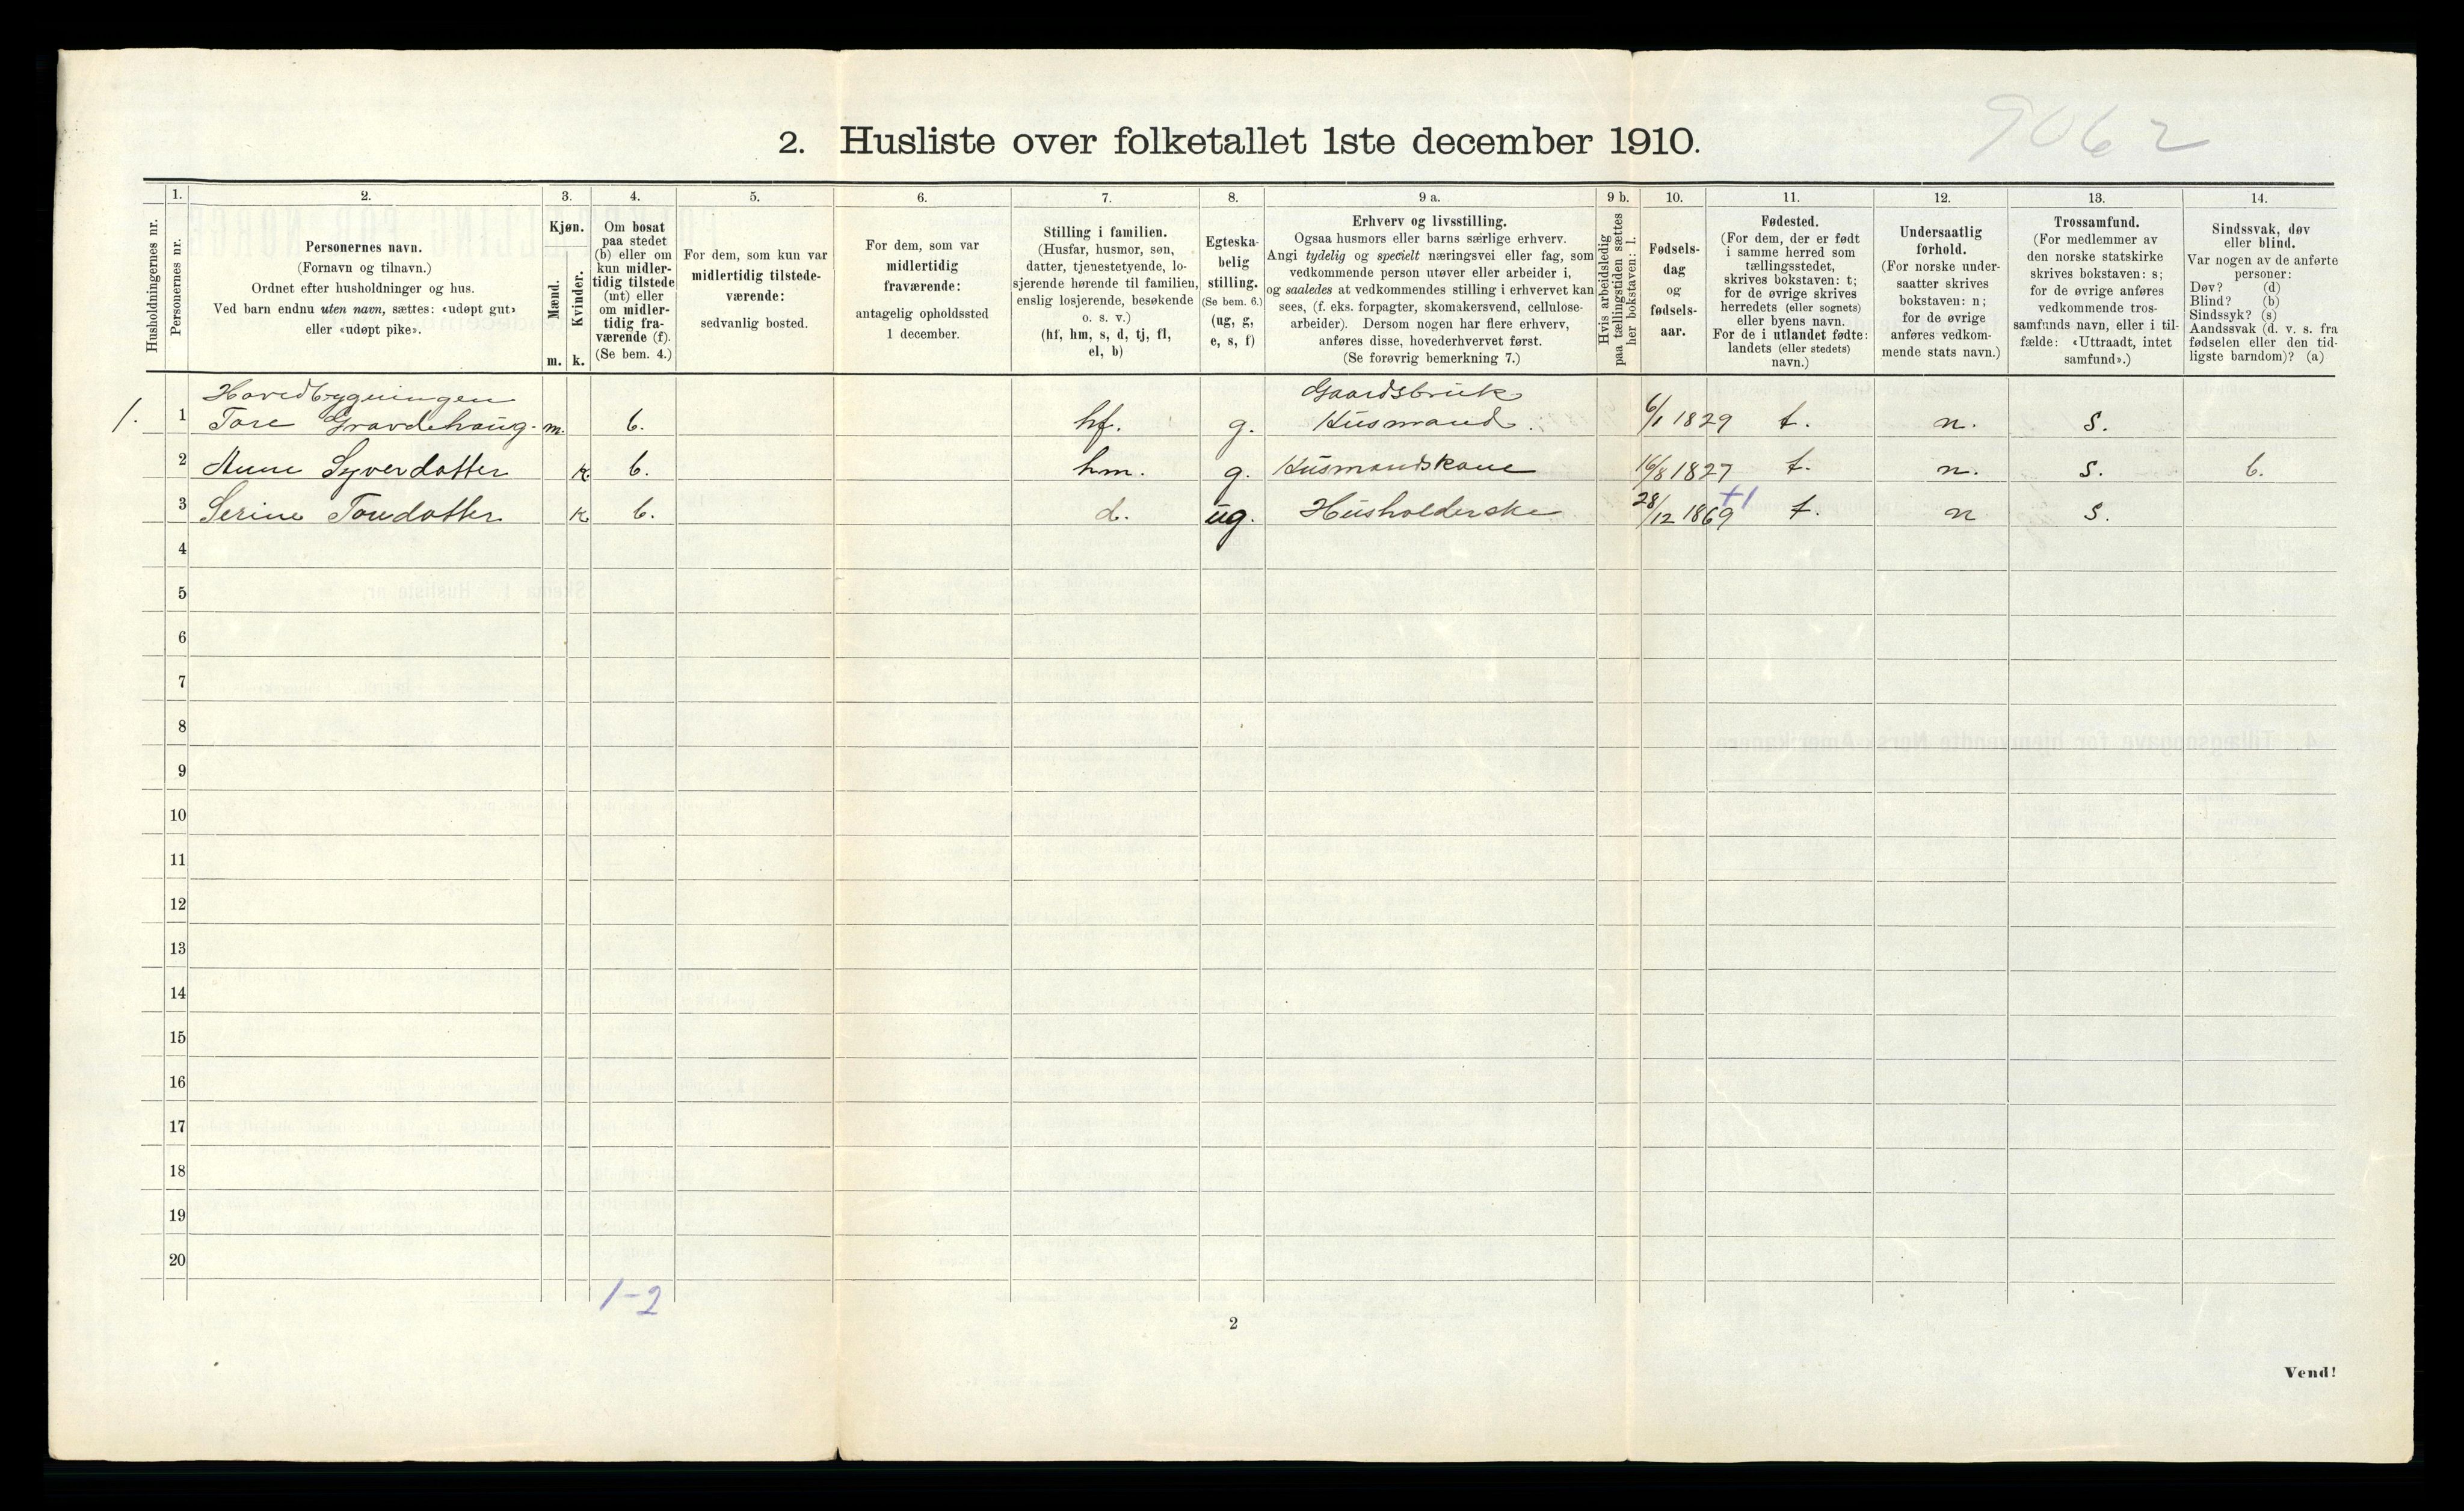 9062
2. Husliste over folketallet 1ste december 1910.
Husholdningernes nr.
1.
Personernes nr.
2.
Personernes navn.
(Fornavn og tilnavn.)
Ordnet efter husholdninger og hus.
Ved barn endnu uten navn, sættes: «udøpt gut»
eller «udøpt pike».
3.
Kjøn.
Mænd.
Kvinder.
m. k.
4.
Om bosat
paa stedet
(b) eller om
kun midler-
tidig tilstede
(mt) eller
om midler-
tidig fra-
værende (f).
(Se bem. 4.)
5.
For dem, som kun var
midlertidig tilstede-
værende:
sedvanlig bosted.
6.
For dem, som var
midlertidig
fraværende:
antagelig opholdssted
1 december.
7.
Stilling i familien.
(Husfar, husmor, søn,
datter, tjenestetyende, lo-
sjerende hørende til familien,
enslig losjerende, besøkende
o. s. v.)
(hf, hm, s, d, tj, fl,
el, b)
8.
Egteska-
belig
stilling.
(Se bem. 6.)
(ug, g,
e, s, f)
9 a.
Erhverv og livsstilling.
Ogsaa husmors eller barns særlige erhverv.
Angi tydelig og specielt næringsvei eller fag, som
vedkommende person utøver eller arbeider i,
og saaledes at vedkommendes stilling i erhvervet kan
sees, (f. eks. forpagter, skomakersvend, cellulose-
arbeider). Dersom nogen har flere erhverv,
anføres disse, hovederhvervet først.
(Se forøvrig bemerkning 7.)
9 b.
Hvis arbeidsledig
paa tællingstiden sættes
her bokstaven: l.
10.
Fødsels-
dag
og
fødsels-
aar.
11.
Fødested.
(For dem, der er født
i samme herred som
tællingsstedet,
skrives bokstaven: t;
for de øvrige skrives
herredets (eller sognets)
eller byens navn.
For de i utlandet fødte:
landets (eller stedets)
navn.)
12.
Undersaatlig
forhold.
(For norske under-
saatter skrives
bokstaven: n;
for de øvrige
anføres vedkom-
mende stats navn.)
13.
Trossamfund.
(For medlemmer av
den norske statskirke
skrives bokstaven: s;
for de øvrige anføres
vedkommende tros-
samfunds navn, eller i til-
fælde: «Uttraadt, intet
samfund».)
14.
Sindssvak, døv
eller blind.
Var nogen av de anførte
personer:
Døv? (d)
Blind? (b)
Sindssyk? (s)
Aandssvak (d. v. s. fra
fødselen eller den tid-
ligste barndom)? (a)
Hovedbygningen Gaardsbruk
1. 1 Tore Gravdehaug. m. b. hf. g. Husmand. 6/1 1829 t. n. s.
2 Anne Syverdatter k. b. hm. g. Husmandskone 16/8 1827 t. n. s. b.
+1
3 Serine Toredatter k b. d. ug. Husholderske 28/12 1869 t. n s.
4
5
6
7
8
9
10
11
12
13
14
15
16
17
18
19
20
1-2
2
Vend!